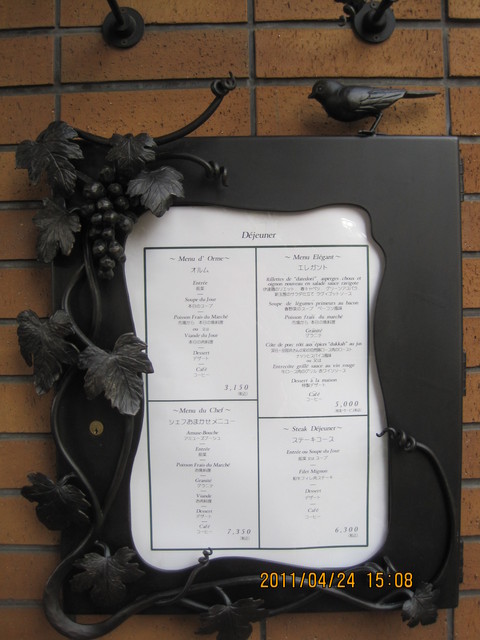 Déjeuner
~ Menu d' Orme~
オルム
Entrée
前菜
Soupe du Jour
本日のスープ
Poisson Frais du Marché
市場から 本日の魚料理
ou 又は
Viande du Jour
本日の肉料理
Dessert
デザート
Café
コーヒー
3,150
(税込)
~ Menu Elégant~
エレガント
Soupe de légumes printaniers au bacon
Poisson Frais du marché
市場から 本日の魚料理
Granité
グラニテ
Côte de porc rôti aux épices "dukkah" au jus
ou 又は
Entrecôte grillé sauce au vin rouge
Dessert à la maison
特製デザート
Café
コーヒー
5,000
~ Menu du Chef~
シェフおまかせメニュー
Amuse-Bouche
アミューズブーシュ
Entrée
前菜
Poisson Frais du Marché
魚料理
Granité
グラニテ
Viande
肉料理
Dessert
デザート
Café
コーヒー
7,350
(税込)
~ Steak Déjeuner~
ステーキコース
Entrée ou Soupe du Jour
前菜 又は スープ
Filet Mignon
Dessert
デザート
Café
コーヒー
6,300
(税込)
2011/04/24 15:08